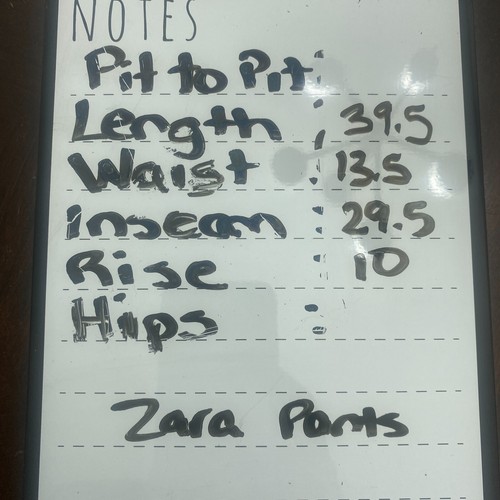 NOTES
Pit to Pit:
Length : 39.5
Waist : 13.5
Inseam : 29.5
Rise : 10
Hips :
Zara Pants